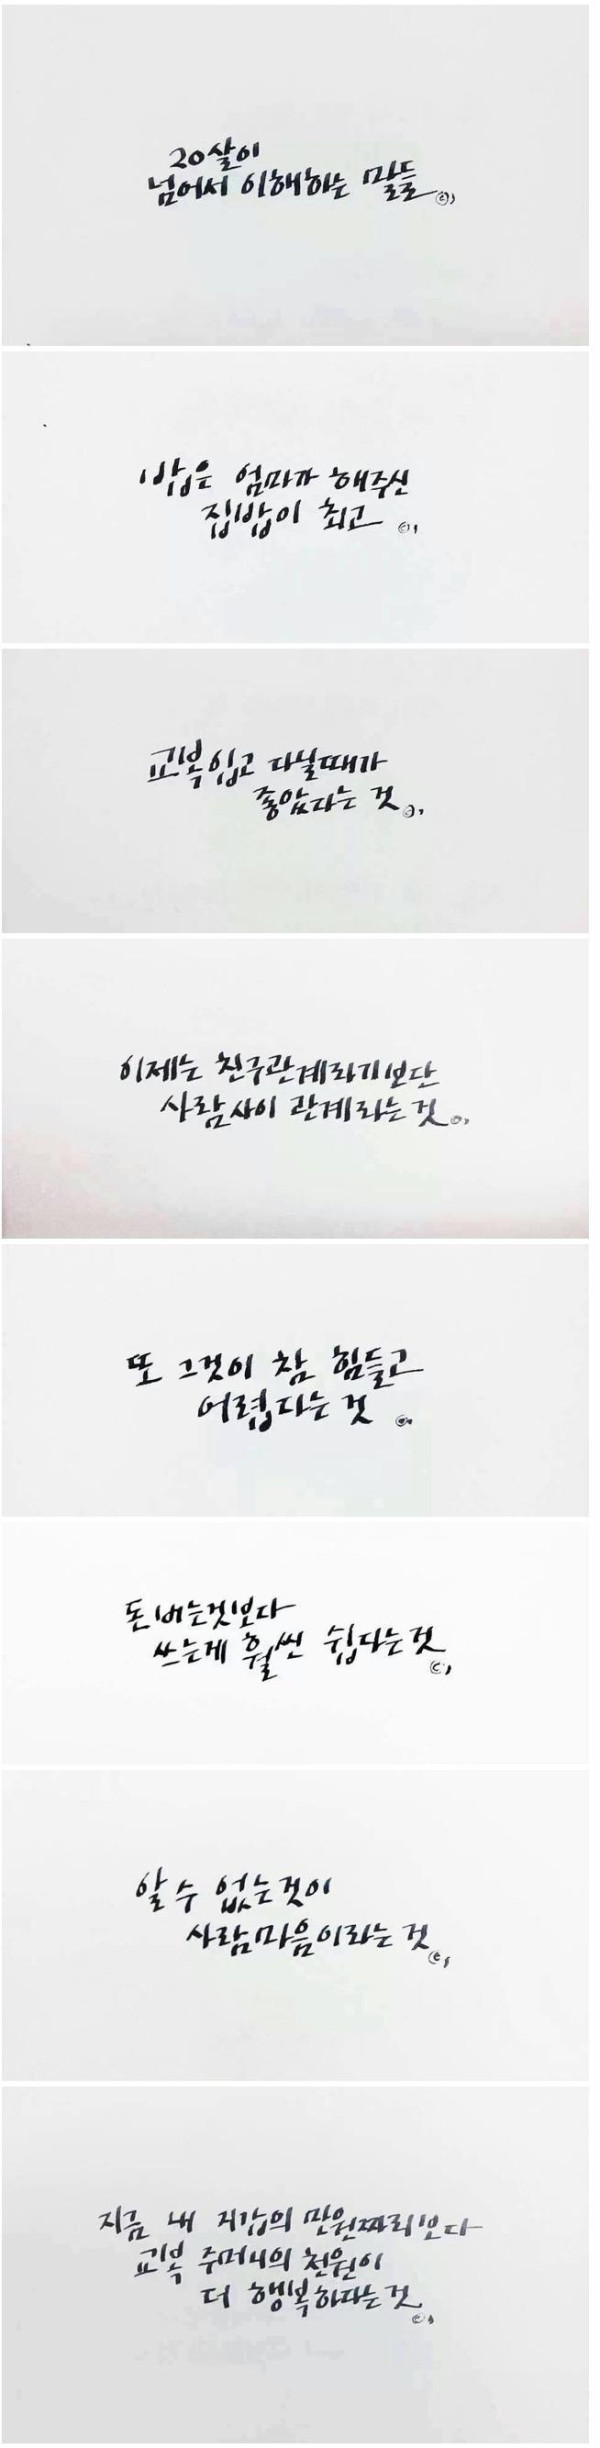 20살이
넘어서 이해하는 말들
밥은 엄마가 해주신
집밥이 최고
교복입고 다닐때가
좋았다는 것
이제는 친구관계라기보단
사람사이 관계라는것
또 그것이 참 힘들고
어렵다는것
돈 버는것보다
쓰는게 훨씬 쉽다는것
알 수 없는것이
사람마음이라는 것
지금 내 지갑의 만원짜리보다
교복 주머니의 천원이
더 행복하다는것